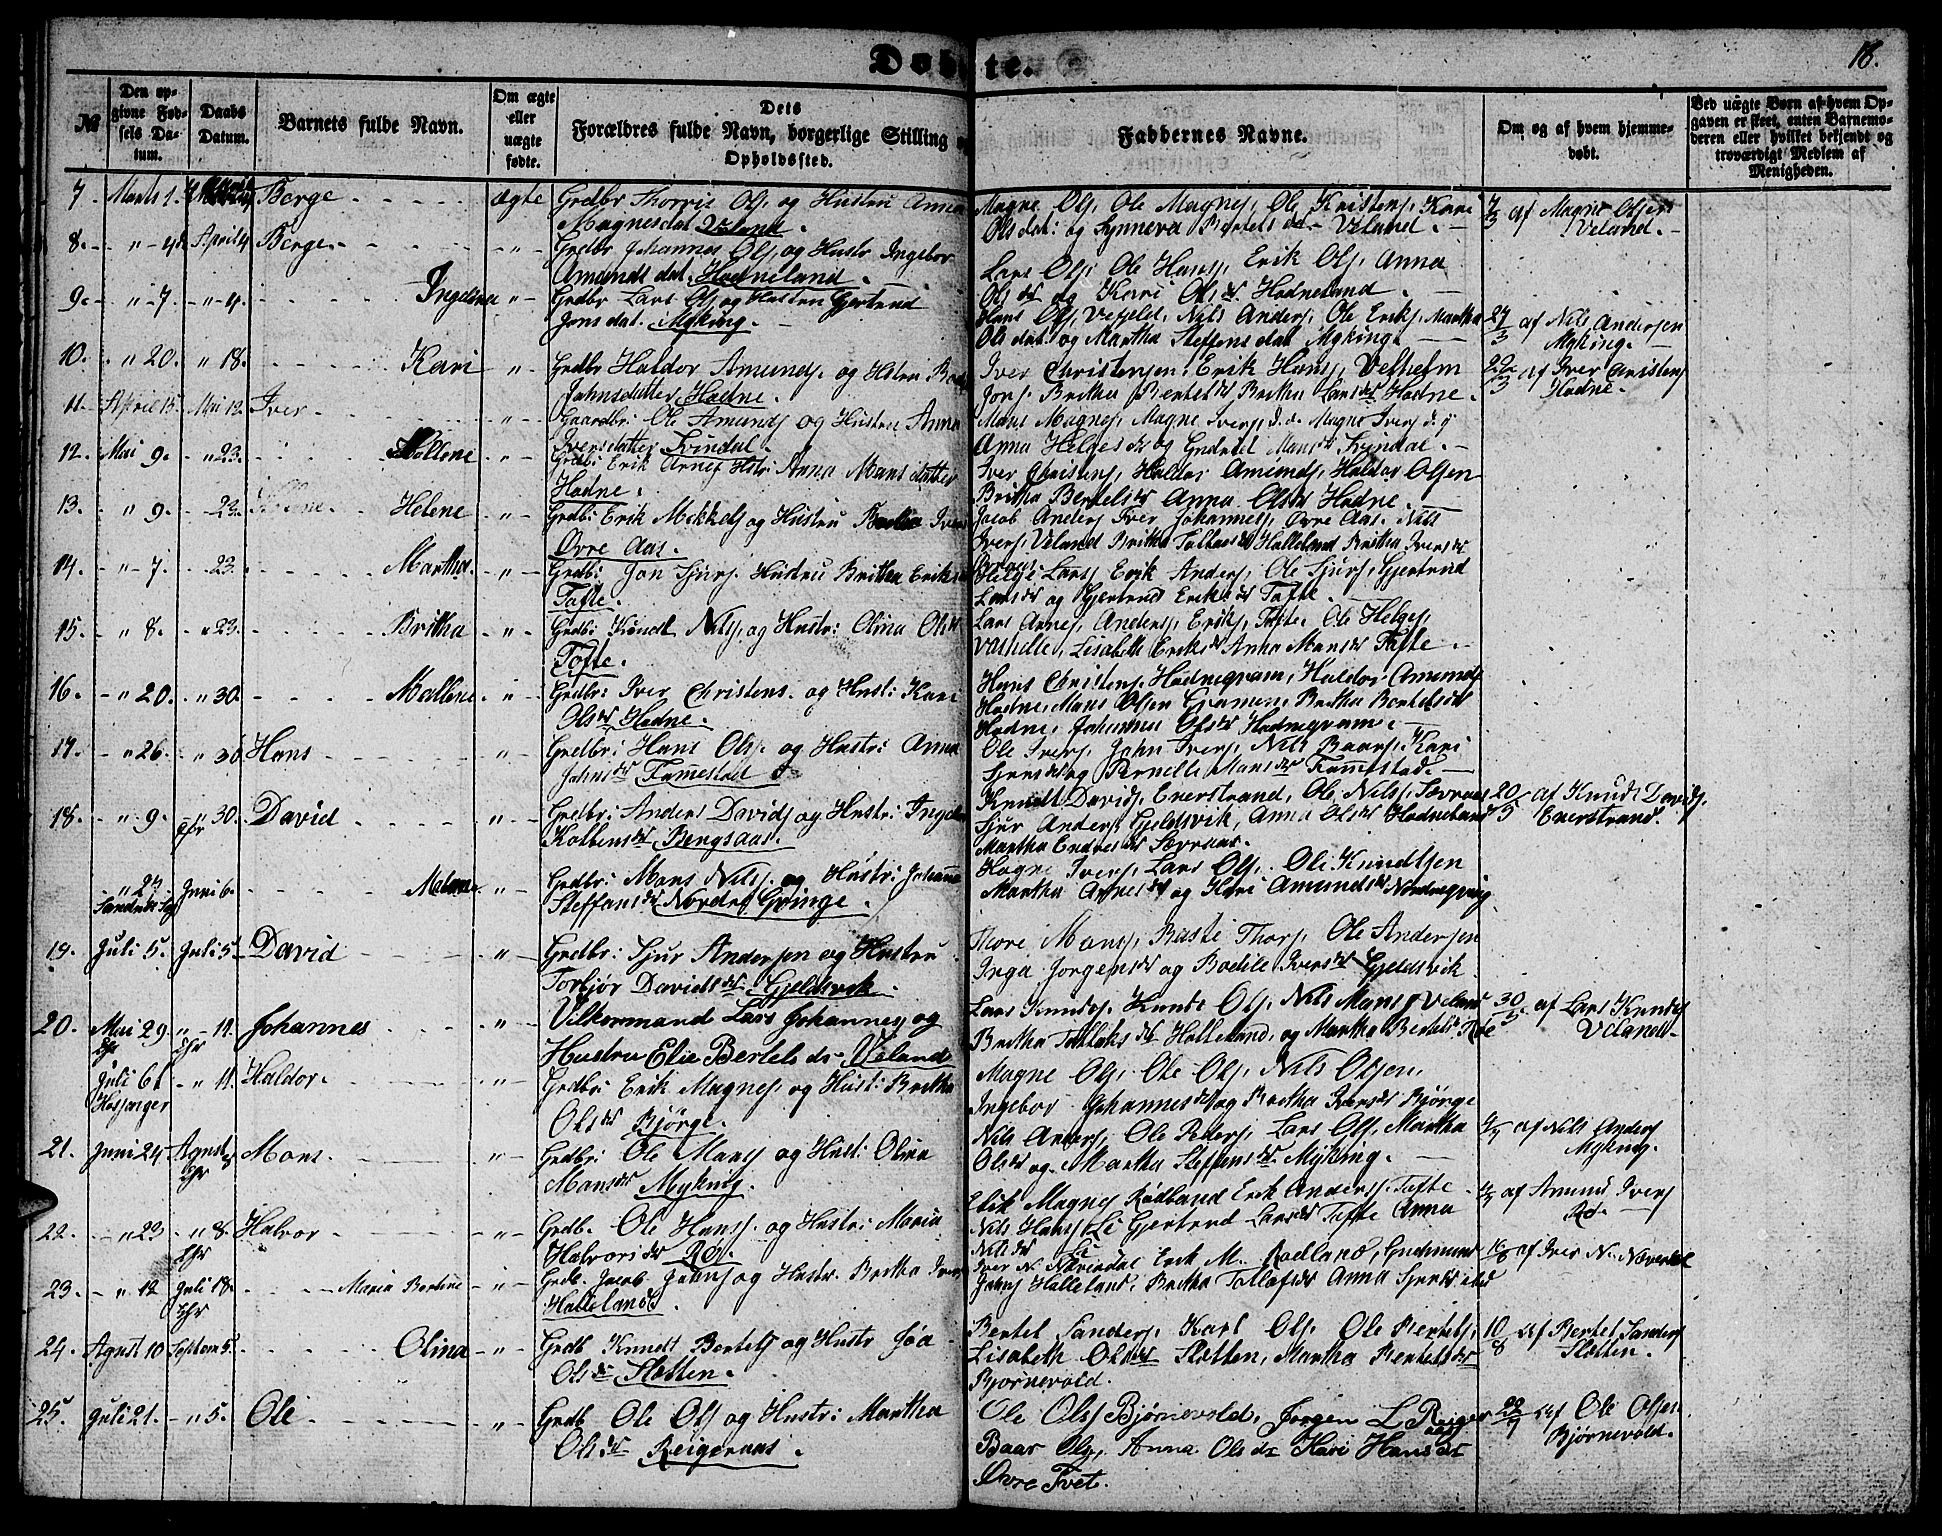 Døbte.
18.
№
Den opgivne Fødsels Datum.
Daabs Datum.
Barnets fulde Navn.
Om ægte eller uægte fødte.
Dets Forældres fulde Navn, borgerlige Stilling og Opholdssted.
Faddernes Navne.
Om og af hvem hjemmedøbt.
Ved uægte Børn af hvem Opgaven er skeet, enten Barnemoderen eller hvilket bekjendt og troværdigt Medlem af Menigheden.
7. Marts 1. Berge ægte Grdbr Thorris Ols. og Hustru
Magnesdat Veland.
Magne Ols, Ole Magnes, Ole Kristens, Kari
Olsdat: og Synneva Bertelsdr Veland.
7/3 af Magne Olsen
Veland.
8. " 4 April 4 Berge " Grdbr Johannes Ols. og Hustr Ingebor
Amundsdat. Hodneland.
Lars Ols, Ole Hans, Erik Ols, Anna
Olsdr og Kari Olsdr Hodneland.
9. " 7. " 4. Ingelina " Grdbr Lars Ols og Hustru Gjertrud
Jonsdat. Myking.
Hans Ols, Nils Anders, Ole Eriks, Martha
Olsdat. og Martha Steffensdat Myking.
27/3 af Nils Andersen
Myking.
10. " 20. " 18. Kari " Grdbr Haldor Amunds. og Hstru
Johnsdatter Hodne.
Iver Christensen, Erik Hans, Velhelm
Jons, Britha Bertelsdr Britha Larsdr Hodne.
22/3 af Iver Cristens
Hodne.
11. April 15. Mai 12. Iver " Gaardbr: Ole Amunds og Hustru Anna
Iversdatter Svindal.
Mans Magnes, Magne Ivers d.æ. Magne Ivers d.y
Anna Helgesdr og Mansdr Svindal.
12. Mai 9. " 23. Mallene " Grdb: Erik Arnes Hstr: Anna Mansdatter
Hodne.
Iver Christens, Haldor Amunds, Haldor Olsen
Britha Bertelsdr Anna Olsdr Hodne.
13. " 9. 23. Helene " Grdb: Erik Mikkels og Hustru Ivers
Øvre Aas.
Jacob Anders Iver Johannes, Øvre Aas. Nils
Ivers, Veland Britha Halleland Britha Iversdr
14. " 7. 23. Martha. " Grdb: Jon Sjurs. Hustru Britha Eriks
Tofte.
Helge Lars, Erik Anders, Ole Sjurs, Gjertrud
Larsdr og Gjertrud Eriksdr Tofte.
15. " 8. " 23. Britha " Grdb: Knudt Nils, og Hustr: Olina Olsdr
Tofte.
Lars Arnes, Anders, Eriks, Tofte. Ole Helges,
Lisabeth Eriksdr Anna Mansdr Tofte.
16. " 20. " 30. Mallene. " Grdbr: Iver Christens. og Hust: Kari
Olsdr Hodne.
Hans Christens, Hodnegram, Haldor Amunds
Hodne, Mans Olsen Gramen, Britha Bertelsdr
Hodne, Johanna Olsdr Hodnegram.
17. " 26. " 30 Hans " Grdbr: Hans Ols. og Hustr: Anna
Johnsdr Fammestad
Ole Ivers, John Ivers, Nils Baars, Kari
og Pernelle Mansdr Fammestad.
18. " 9. 30. David " Grdbr: Anders Davids og Hustr: Ingebor
Kolbensdr Bengsaas.
Knudt Davids, Enerstrand, Ole Nils,
Sjur Anders Gjeldsvik, Anna Olsdr Hodneland
Martha Endresdr
20/5 af Knudt Davids.
Enerstrand.
" 27 Juni 6. Malene " Grdbr: Mans Nils, og Hustr: Johanna
Steffansdr Nordre Qvinge.
Hogne Ivers, Lars Ols, Ole Knudtsen
Martha Arnesdr og Kari Amundsdr
19. Juli 5. Juli 5. David " Grdbr: Sjur Andersen og Hustru
Torbjør Davidsdr Gjeldsvik.
Thore Mans, Baste Thors, Ole Andersen
Inga Jorgensdr og Bodile Iversdr Gjeldsvik
20. Mai 29 " 11. Johannes " Vilkormand Lars Johannes og
Hustru Elie Bertelsdr Veland
Lars Knuds, Knudt Ols, Nils Mans Veland
Britha Halleland, og Martha Bertelsdr
30/5 af Lars Knuds
Veland.
Juli 6 " 11. Haldor. " Grdbr: Erik Magnes, og Hustr: Britha
Hosanger Olsdr Bjørge.
Magne Ols, Ole Ols, Nils Olsen,
Ingebor Johannesdr og Britha Iversdr Bjørge
21. Juni 24 Agust Mons " Grdbr: Ole Mans og Hust: Olina
Mansdr Myking.
Nils Anders, Ole Peders, Lars Ols, Martha
Olsdr og Martha Steffensdr Myking.
af Nils Anders
Myking.
22. " 23 " 8. Halvor " Grdb. Ole Hans. og Hustr: Maria
Halvorsdr Rø.
Erik Magnes Rødland Erik Anders Tofte
Nils Hans Li Gjertrud Larsdr Tofte Anna
Nilsdr Li
af Amund Ivers
23. " 12 Juli 18. Maria Bertine " Grdb. Jacob Johns og Hustr. Britha Ivers
Halleland.
Iver N. Næverdal Erik M. Rødland, Gudmund
Johns Halleland, Britha Anna
af Iver N. Næverdal
24. Agust 10 Septem 5. Olina " Grdb Knudt Bertels og Hustr
Olsdr Slotten.
Bertel Sanders, Karl Ols, Ole Bertels,
Lisabeth Olsdr Slotten, Martha Bertelsdr
Bjørnevold.
10/8 af Bertel Sanders
Slotten.
25. Juli 21. " 5. Ole " Grdb Ole Ols og Hustr: Martha
Olsdr Reigeraas.
Ole Ols Bjørnevold, Jørgen L Reiger
aas
Baar Ols, Anna Olsdr Kari Hansdr
Øvre Tvet.
af Ole Olsen
Bjørnevold.